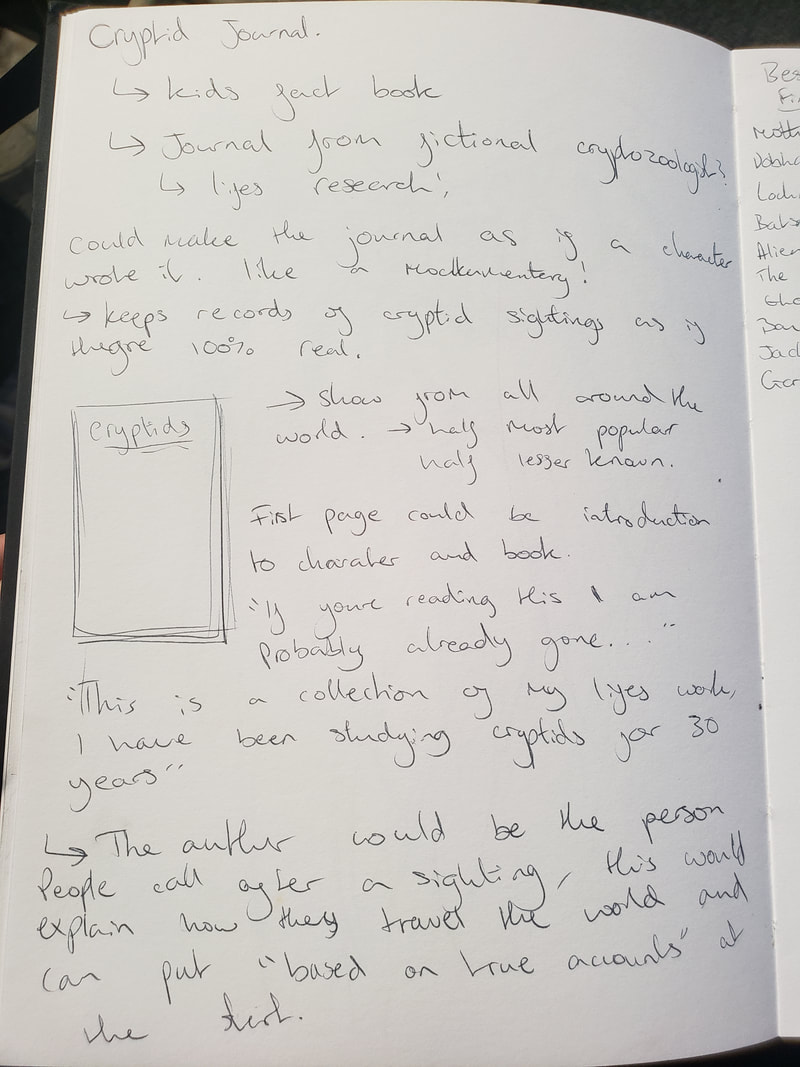 Cryptid Journal.
↳ kids fact book
↳ Journal from fictional cryptozoologist?
↳ lifes research!,
Could make the journal as if a character
wrote it. like a Mockumentery!
↳ keeps records of cryptid sightings as if
theyre 100% real.
Cryptids
→ Show from all around the
world. → half most popular
half lesser known.
First page could be introduction
to charater and book.
"If youre reading this I am
probably already gone...."
"This is a collection of my lifes work,
I have been studying cryptids for 30
years"
↳ The author would be the person
People call after a sighting, this would
explain how they travel the world and
can put "based on true accounts" at
the start.
The